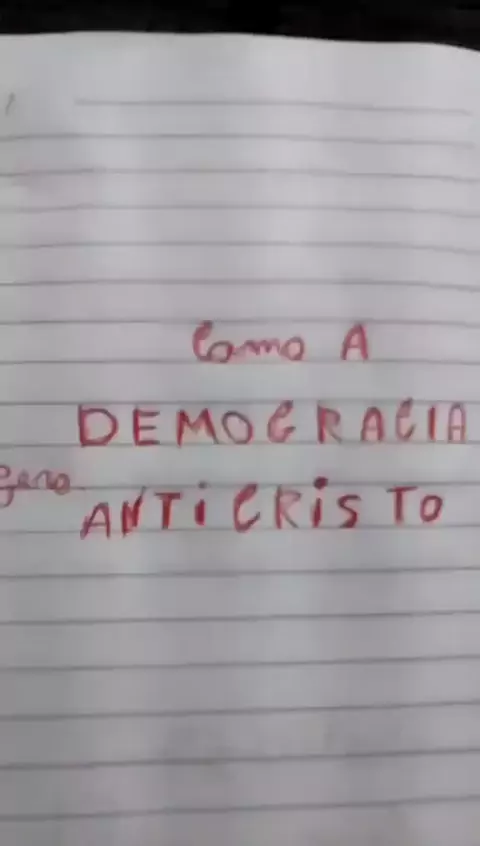 Como A
DEMOCRACIA
gera ANTICRISTO